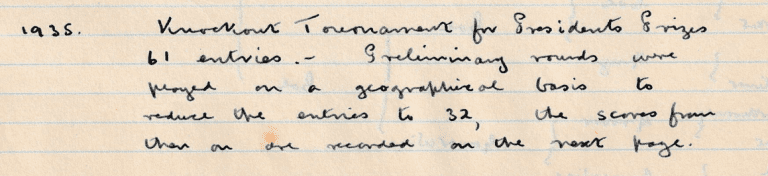 1935. Knockout Tournament for Presidents Prizes
61 entries. - Preliminary rounds were
played on a geographical basis to
reduce the entries to 32, the scores from
then on are recorded on the next page.